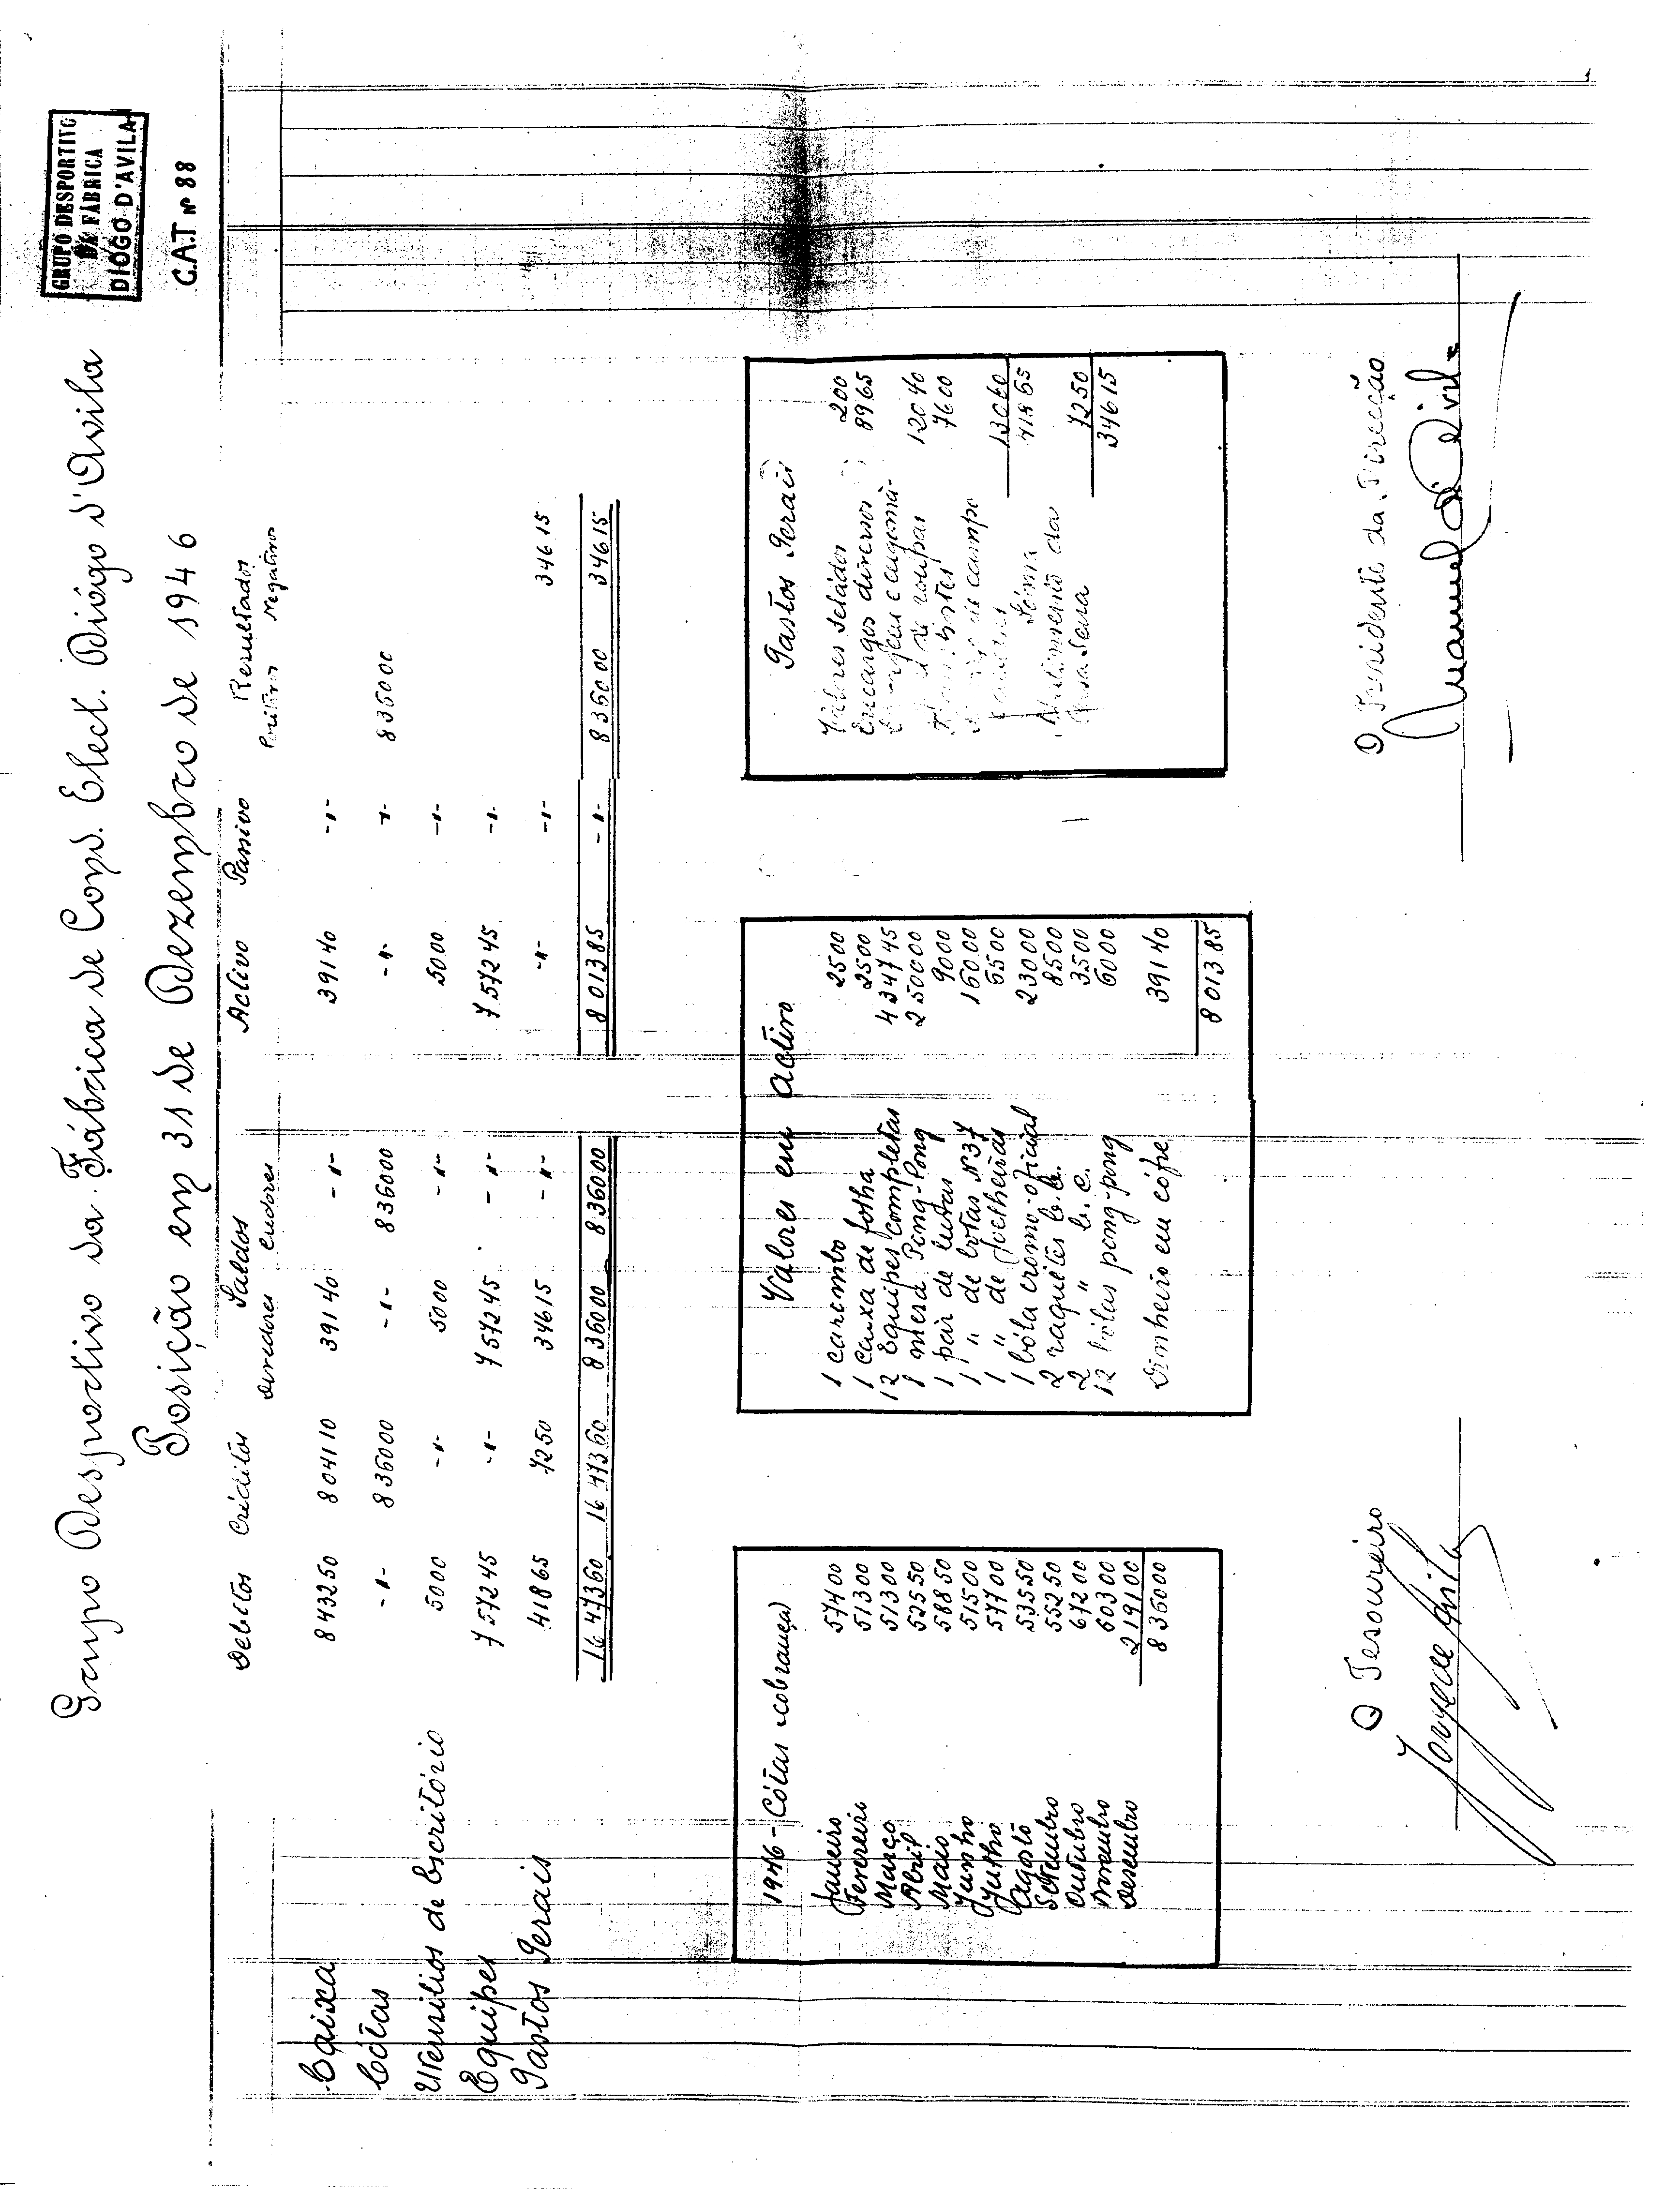 GRUPO DESPORTIVO
DA FÁBRICA
DIOGO D'AVILA
C.A.T nº 88
Grupo Desportivo da Fábrica de Cond. Elect. Diógo d'Avila
Posição em 31 de Dezembro de 1946
Debitos Créditos Saldos Activo Passivo Resultados
devedores credores Positivos Negativos
Caixa 843250 804110 39140 -"- 39140 -"-
Cótas -"- 836000 -"- 836000 -"- -"- 836000
Utensilios de Escritório 5000 -"- 5000 -"- 5000 -"-
Equipes 757245 -"- 757245 -"- 757245 -"-
Gastos Gerais 41865 7250 34615 -"- -"- -"- 34615
1647360 1647360 836000 836000 801385 -"- 836000 34615
1946 - Cótas cobradas
Janeiro 57400
Fevereiro 51300
Março 51300
Abril 52550
Maio 58850
Junho 51500
Julho 57700
Agosto 53550
Setembro 55250
Outubro 67200
Novembro 60300
Dezembro 219100
836000
Valores em activo
1 carimbo 2500
1 caixa de folha 2500
12 Equipes completas 434745
1 mesa Ping-Pong 250000
1 par de luvas 9000
1 " de botas Nº 37 16000
1 " de joelheiras 6500
1 bóla cromo-oficial 23000
2 raquetes b.b. 8500
2 " b.c. 3500
12 bólas pong-pong 6000
Dinheiro em cófre 39140
801385
Gastos Gerais
Valores selados 200
Encargos diversos 8965
e engomá-
de roupas 12040
7600
campo
13060
Sôma 41865
7250
34615
O Tesoureiro
O Presidente da Direcção